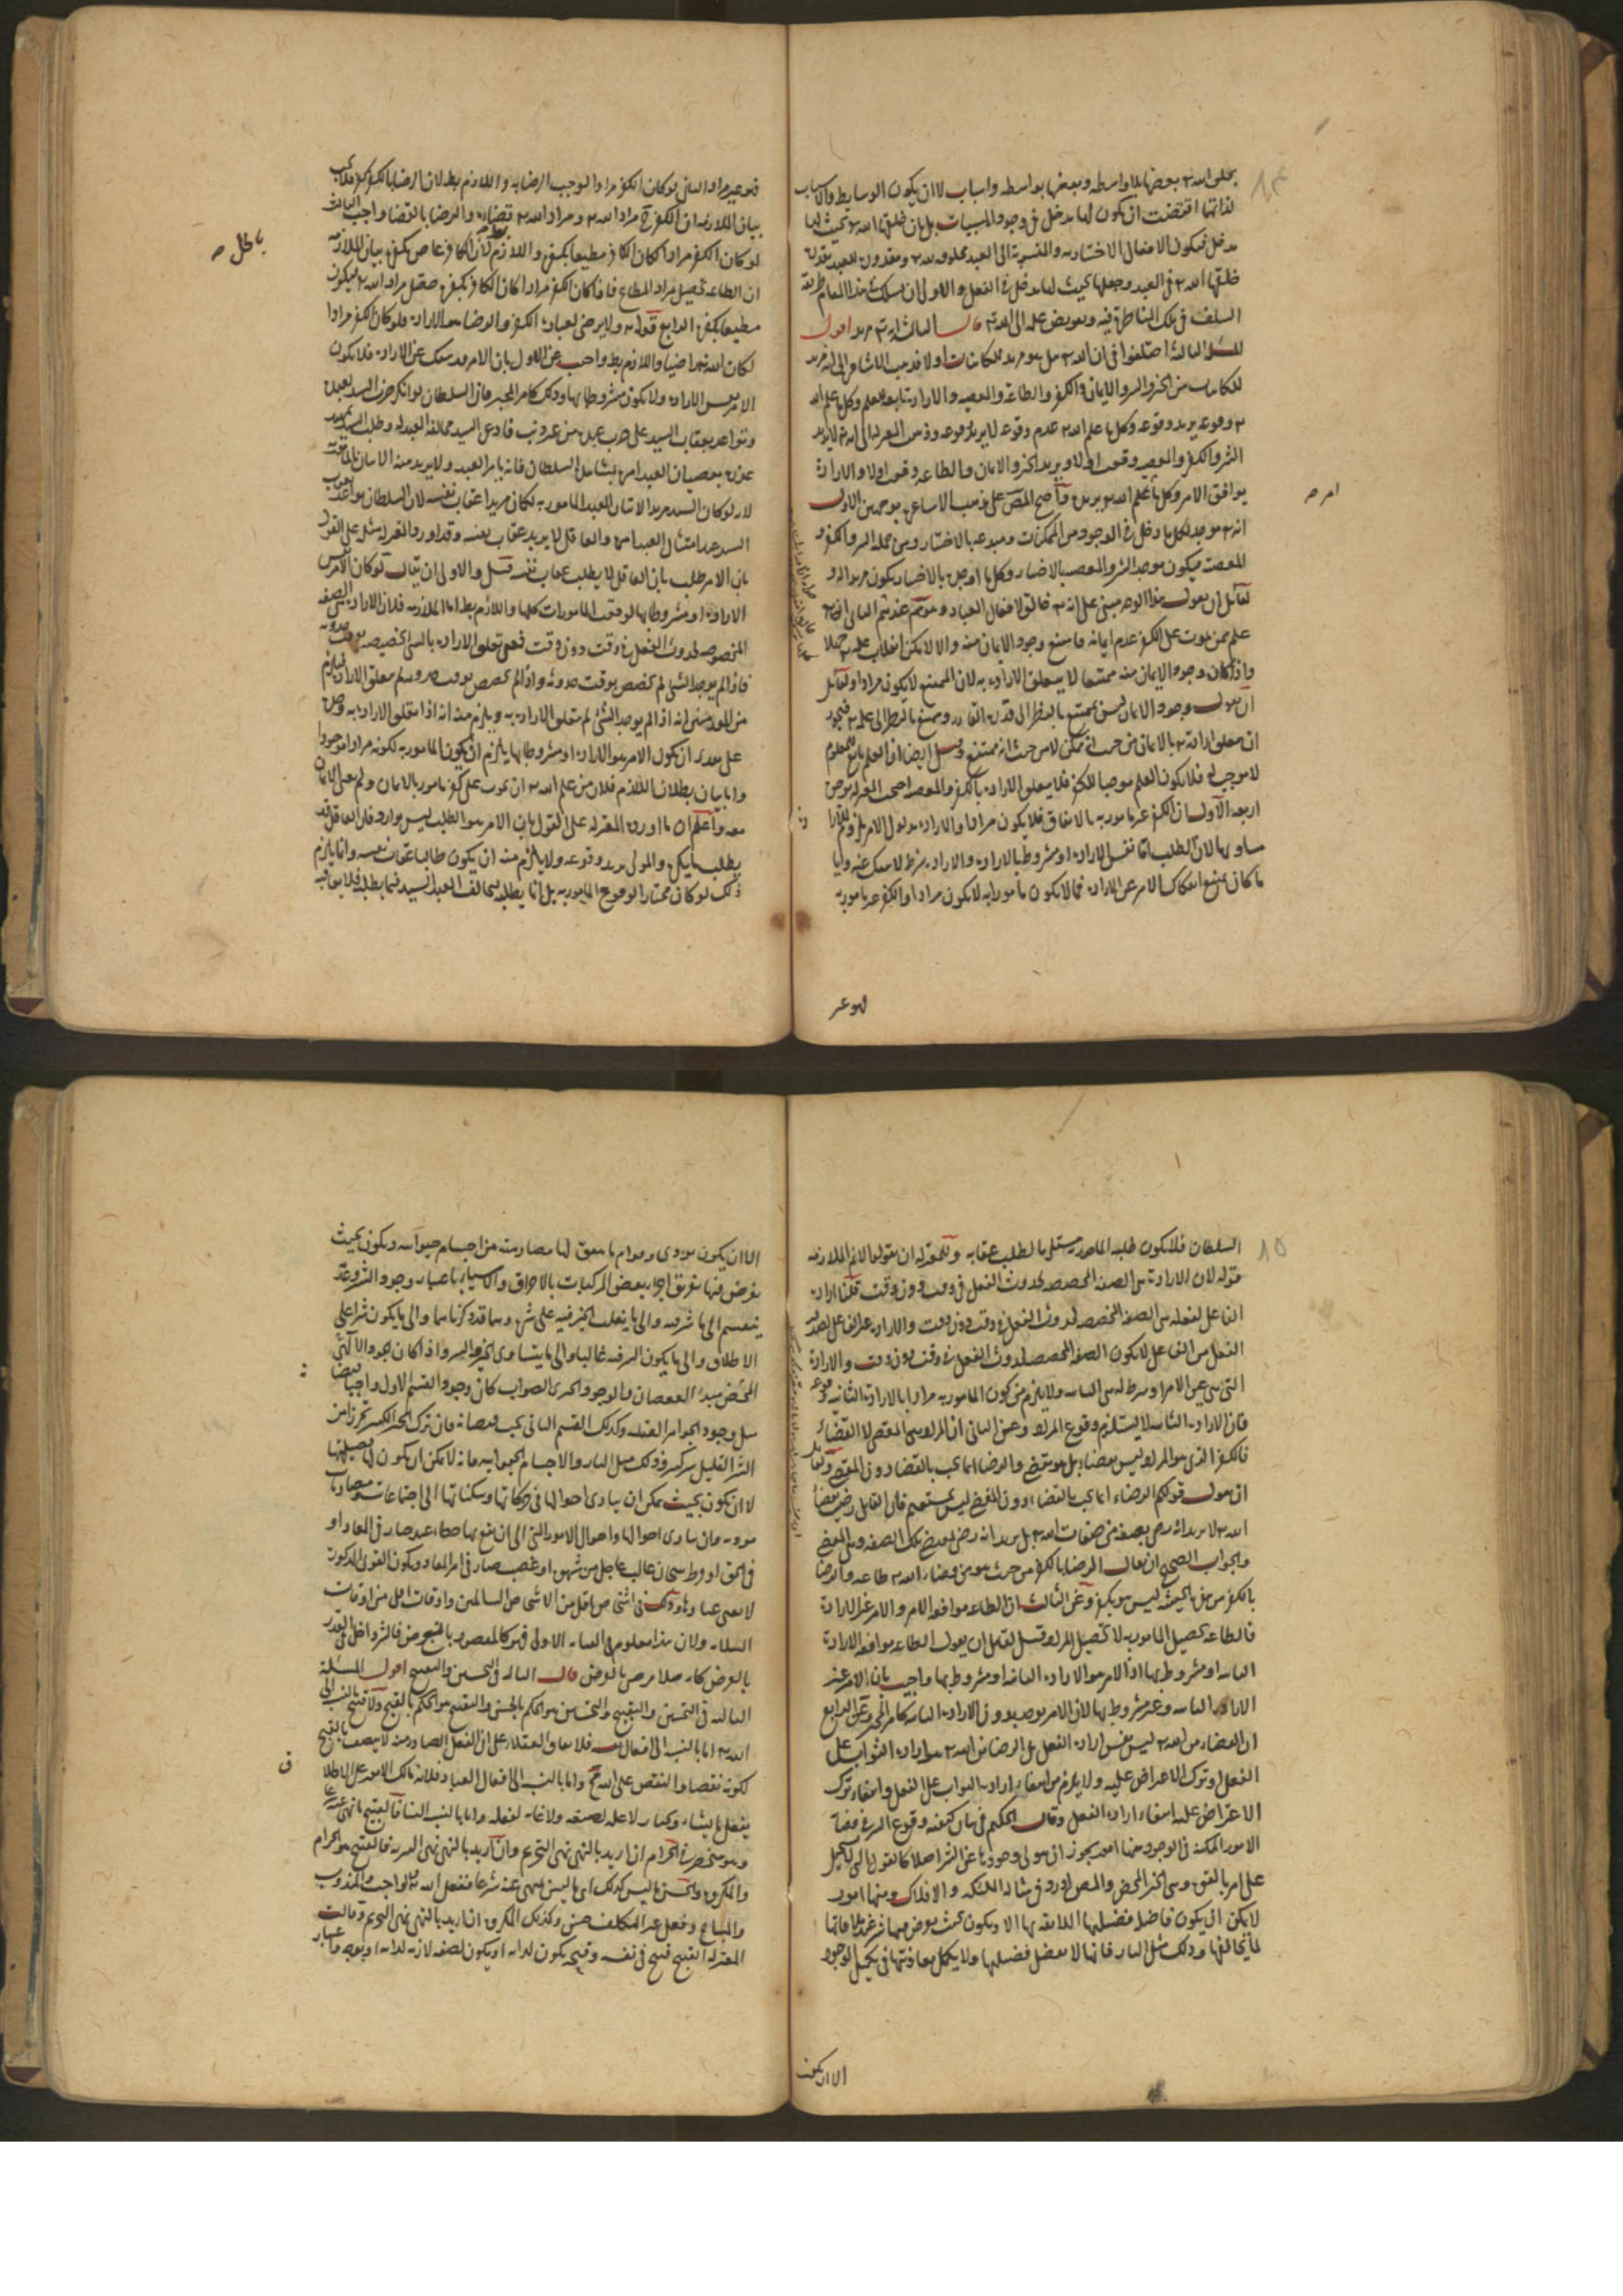 يخلق الله بعضها بلا واسطه وبعضها بواسطه واسباب لا ان يكون الوسايط والاسباب
لذاتها اقتضت ان يكون لها مدخل في وجود المسببات بل بان خلقها الله بحيث لها
مدخل فيكون الافعال الاختياريه المنسوبة الى العبد مخلوقه لله ومقدورة للعبد بقدرة
خلقها الله في العبد وجعلها بحيث لها مدخل في الفعل والاولى ان يسلك في هذا المقام طريقة
السلف في ترك المناظرة فيه وتفويض علمه الى الله قال الثالث انه مريد اقول
المسئلة الثالثة اختلفوا في ان الله هل هو مريد للكائنات اولا فذهب الاشاعره الى انه مريد
للكائنات من الخير والشر والايمان والكفر والطاعة والمعصيه والارادة تابعة للعلم وكل ما علم الله
وقوعه يريد وقوعه وكل ما علم الله عدم وقوعه لا يريد وقوعه وذهب المعتزله الى انه لا يريد
الشر والكفر والمعصيه وقعت اولا ويريد الخير والايمان والطاعه وقعت اولا والارادة
يوافق الامر وكل ما علم الله يريده واحتج المص على مذهب الاشاعره بوجهين الاول
امر صح
انه موجد لكل ما دخل في الوجود من الممكنات ومبدعه بالاختيار ومن جمله الشر والكفر و
المعصية فيكون موجد الشر والمعصيه بالاختيار وكل ما اوجده بالاختيار يكون مريدا له و
لقائل ان يقول هذا الوجه مبني على انه خالق لافعال العباد وهو ممنوع عندهم الثاني انه
علم ممن يموت على الكفر عدم ايمانه فامتنع وجود الايمان منه والا لامكن انقلاب علمه جهلا
واذا كان وجود الايمان منه ممتنعا لا يتعلق الارادة به لان الممتنع لا يكون مرادا ولقائل
ان يقول وجود الايمان ليس بممتنع بالنظر الى قدرة القادر وممتنع بالنظر الى علمه فيجوز
ان يتعلق ارادته بالايمان من حيث انه ممكن لا من حيث انه ممتنع وقيل ايضا ان العلم تابع للمعلوم
لا موجب له فلا يكون العلم موجبا للكفر فلا يتعلق الارادة بالكفر والمعصيه احتج المعتزله بوجوه
اربعة الاول ان الكفر غير مامور به بالاتفاق فلا يكون مرادا والارادة مدلول الامر او
لان الطلب اما نفس الارادة او مشروط بالارادة والارادة شرط لا ينفك عنه وايا
ما كان يمتنع انفكاك الامر عن الارادة فما لا يكون مامورا به لا يكون مرادا والكفر غير مامور به
فهو غير
فهو غير مراد الثاني لو كان الكفر مرادا لوجب الرضا به واللازم بط لان الرضا بالكفر كفر
بيان الملازمه ان الكفر ح مراد الله ومراد الله قضاؤه والرضا بالقضا واجب الثالث
لو كان الكفر مرادا لكان الكافر مطيعا بكفره واللازم لان الكافر عاص بكفره بيان الملازمه
باطل صح
ان الطاعة تحصيل مراد المطاع فاذا كان الكفر مرادا كان الكافر بكفره حصل مراد الله فيكون
مطيعا بكفره الرابع قوله ولا يرضى لعباده الكفر والرضا هو الارادة فلو كان الكفر مرادا
لكان الله به راضيا واللازم بط واجيب عن الاول بان الامر قد ينفك عن الارادة فلا يكون
الامر نفس الارادة ولا يكون مشروطا بها وذلك كامر المخبر فان السلطان لو انكر ضرب السيد لعبده
وتواعد بعقاب السيد على ضرب عبده من غير ذنب فادعى السيد مخالفة العبد له وطلب السيد تمهيد
عذره بعصيان العبد امره بمشاهدة السلطان فانه يامر العبد ولا يريد منه الاتيان بالمامور به
لانه لو كان السيد مريدا لاتيان العبد المامور به لكان مريدا عقاب نفسه لان السلطان تواعد بعقوبة
السيد عند امتثال العبد امره والعاقل لا يريد عقاب نفسه وقد اورد المعتزله مثله على القول
بان الامر طلب بان العاقل لا يطلب عقاب نفسه قيل والاولى ان يقال لو كان الامر نفس
الارادة او مشروطا بها لوقعت المامورات كلها واللازم بط اما الملازمه فلان الارادة هي الصفة
المخصصه لحدوث الفعل في وقت دون وقت فمعنى تعلق الارادة بالشئ تخصيصه بوقت حدوثه
فاذا لم يوجد الشئ لم يتخصص بوقت حدوثه واذا لم يتخصص بوقت حدوثه لم يتعلق الارادة به فيلزم
من المقدمتين انه اذا لم يوجد الشئ لم يتعلق الارادة به ويلزم منه انه اذا تعلق الارادة به وجد
على تقدير ان يكون الامر هو الارادة او مشروطا بها يلزم ان يكون المامور به لكونه مرادا موجودا
واما بيان بطلان اللازم فلان من علم الله ان يموت على كفره مامور بالايمان ولم يقع الايمان
منه واعلم ان ما اورده المعتزله على القول بان الامر هو الطلب ليس بوارد فان العاقل قد
يطلب ما يكره والمولى يريد وقوعه ولا يلزم منه ان يكون طالبا عقاب نفسه وانما يلزم
ذلك لو كان مختارا لوقوع المامور به بل انما يطلبه ليخالف العبد السيد فيما يطلبه فلا يعاقبه
٨٥
السلطان فلا يكون طلبه المامور به مستلزما لطلب عقابه وللمعتزله ان يقولوا لا نم الملازمه
قوله لان الارادة هي الصفة المخصصه لحدوث الفعل في وقت دون وقت قلنا ارادة
الفاعل لفعله هي الصفة المخصصه لحدوث الفعل في وقت دون وقت والارادة
الفعل من الفاعل لا يكون الصفة المخصصه لحدوث الفعل في وقت دون وقت والارادة
التي هي عين الامر او شرط له هي الثانيه ولا يلزم من كون المامور به مرادا بالارادة الثانيه وقوعه
فان الارادة الثانيه لا يستلزم وقوع المراد وعن الثاني ان المراد هو المقضي لا القضاء
فالكفر الذي هو المراد ليس بقضاء بل هو مقضي والرضا انما يجب بالقضاء دون المقضي ولقائل
ان يقول قولكم الرضاء انما يجب بالقضاء دون المقضي ليس بمستقيم فان القائل رضيت بقضاء
الله لا يريد انه رضي بصفة من صفات الله بل يريد انه رضي بمقتضى تلك الصفة وهو المقضي
والجواب الصحيح ان يقال الرضا بالكفر من حيث هو من قضاء الله طاعه والرضا
بالكفر من هذه الحيثيه ليس هو بكفر وعن الثالث ان الطاعه موافقة الامر والامر غير الارادة
فالطاعه تحصيل المامور به لا تحصيل المراد قيل لقائل ان يقول الطاعه موافقة الارادة
الثانيه او مشروط بها اذ الامر هو الارادة الثانيه او مشروط بها واجيب بان الامر غير
الارادة الثانيه وغير مشروط بها لان الامر يوجد بدون الارادة الثانيه كامر المخبر وعن الرابع
ان الرضاء من الله ليس نفس ارادة الفعل بل الرضا من الله هو ارادة الثواب على
الفعل او ترك الاعتراض عليه ولا يلزم من انتفاء ارادة الثواب على الفعل وانتفاء ترك
الاعتراض عليه انتفاء ارادة الفعل وقال الحكيم في بيان كيفيه وقوع الشر في قضائه
الامور الممكنه في الوجود منها امور يجوز ان يعرى وجودها عن الشر اصلا كالعقول التي لا تحيل
على امر بالقوه وهي الخير المحض والمص اورد في مثاله الملئكه والافلاك ومنها امور
لا يمكن ان يكون فاضله فضيلتها اللائقه بها الا ويكون بحيث يعرض منها شر عند ملاقاتها
لما يخالفها وذلك مثل النار فانها لا يفضل فضيلتها ولا يكمل معاونتها في تكميل الوجود
الا ان يكون
الا ان يكون توذى وتولم ما يتفق لها مصادمته من اجسام حيوانيه ويكون بحيث
يعرض منها تفريق اجزاء بعض المركبات بالاحراق والاشياء باعتبار وجود الشر وعدمه
ينقسم الى ما لا شر فيه والى ما يغلب الخير فيه على شره وهما قد ذكرناهما والى ما يكون شرا على
الاطلاق والى ما يكون الشر فيه غالبا والى ما يتساوى الخير والشر واذا كان الجود الالهي
المحض مبدء لفيضان الوجود الخيري الصواب كان وجود القسم الاول واجبا فيضانه
مثل وجود الجواهر العقليه وكذلك القسم الثاني يجب فيضانه فان ترك الخير الكثير تحرزا من
الشر القليل شر كثير وذلك مثل النار والاجسام الحيوانيه فانه لا يمكن ان يكون لها فضيلتها
الا ان تكون بحيث يمكن ان يتادى احوالها في حركاتها وسكناتها الى اجتماعات ومصادمات
موذيه وان يتادى احوالها واحوال الامور التي الى ان يقع بها خطاء عقد ضار في المعاد او
في الحق او فرط هيجان غالب عاجل من شهوة او غضب ضار في امر المعاد ويكون القوى المذكورة
لا تغني غناؤها وذلك في اشخاص اقل من الاشخاص السالمين واوقات اقل من اوقات
السلامه ولان هذا معلوم في العنايه الاولى فهو كالمقصود بالعرض فالشر داخل في القدر
بالعرض كانه مثلا مرضي بالعرض قال الثالث في التحسين والتقبيح اقول المسئلة
الثالثة في التحسين والتقبيح والتحسين هو الحكم بالحسن والتقبيح هو الحكم بالقبح ولا قبيح بالنسبة الى
الله اما بالنسبة الى افعال نفسه فلاتفاق العقلاء على ان الفعل الصادر منه لا يتصف بالقبح
لكونه نقصا والنقص على الله محال واما بالنسبة الى افعال العباد فلانه مالك الامور على الاطلاق
يفعل ما يشاء ويختار لا علة لصنعه ولا غاية لفعله واما بالنسبة الينا فالقبيح ما نهي عنه شرعا
وهو منحصر في الحرام ان اريد بالنهي نهي التحريم وان اريد بالنهي نهي التنزيه فالقبيح هو الحرام
والمكروه والحسن ما ليس كذلك اي ما ليس بمنهي عنه شرعا كفعل الله والواجب والمندوب
والمباح وفعل غير المكلف حسن وكذلك المكروه ان اريد بالنهي نهي التحريم وقالت
المعتزله القبيح قبيح في نفسه وقبحه يكون لذاته او يكون لصفه لازمه لذاته او بوجوه واعتبار